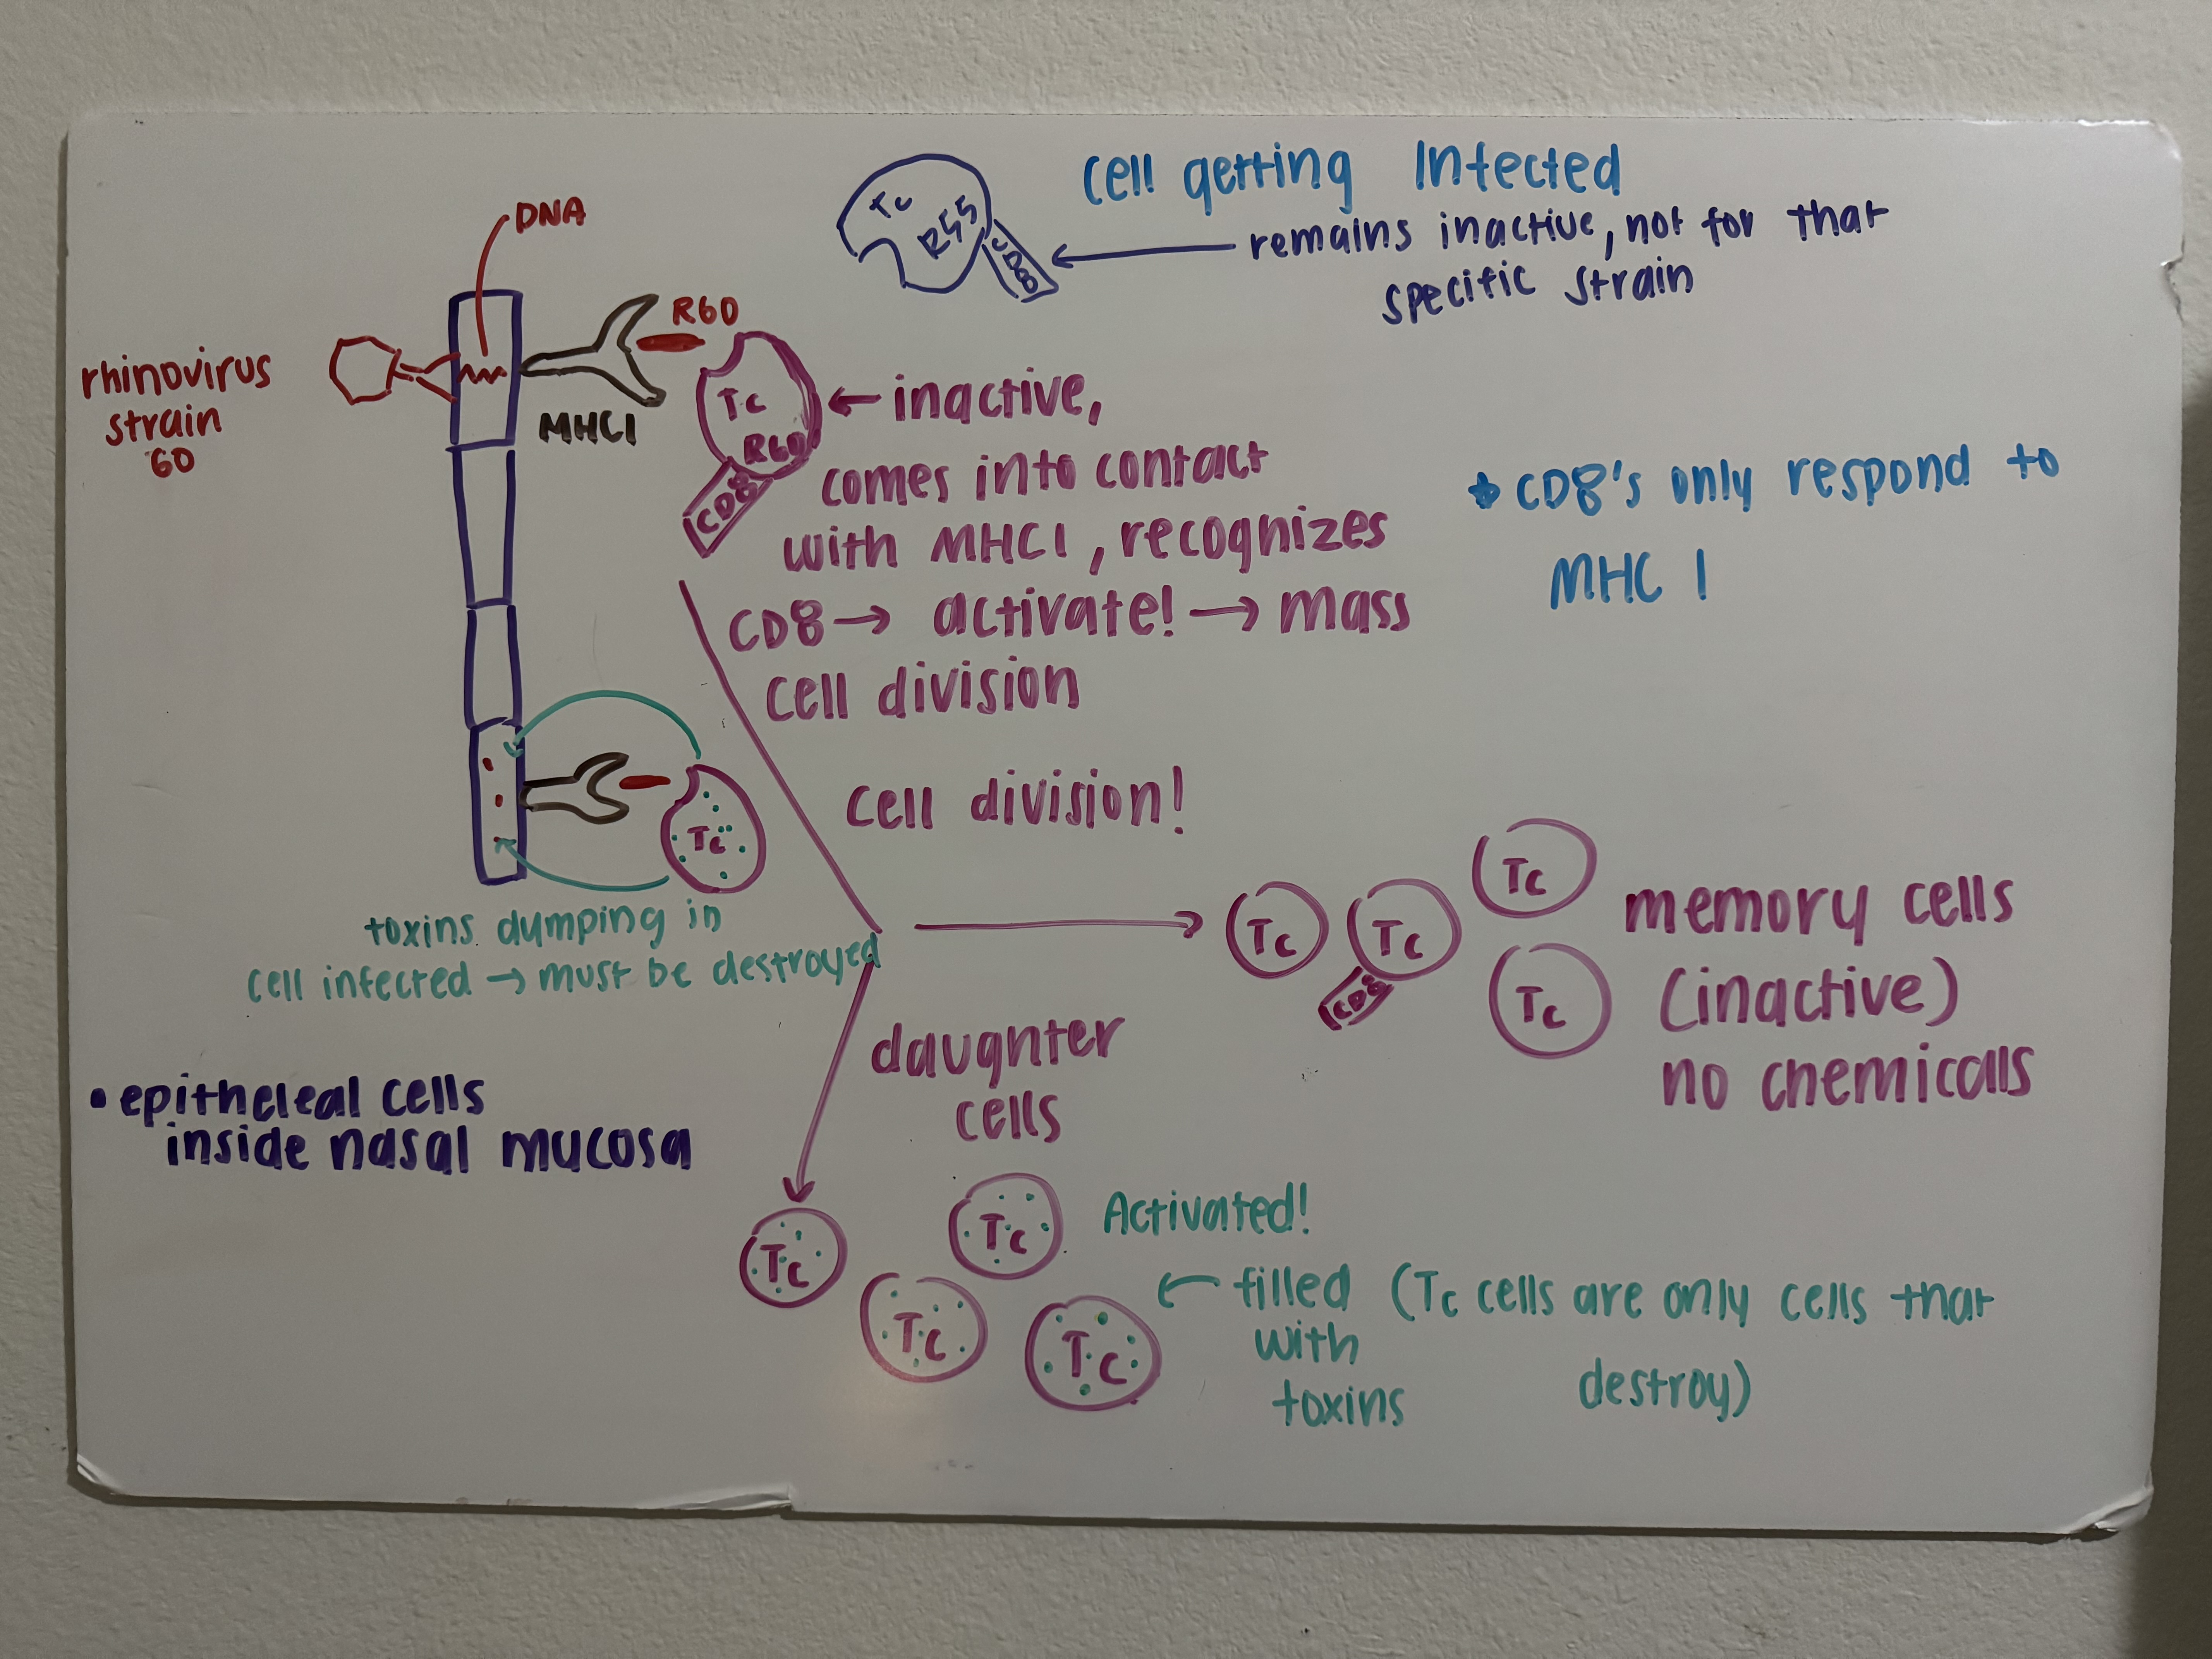 Cell getting Infected
Tc
R55
CD8
remains inactive, not for that
specific strain
DNA
rhinovirus
strain
60
MHC1
R60
Tc
R60
CD8
← inactive,
comes into contact
with MHC1, recognizes
CD8 → activate! → mass
cell division
* CD8's only respond to
MHC 1
Tc
toxins dumping in
cell infected → must be destroyed
cell division!
Tc
Tc
CD8
Tc
Tc
memory cells
(inactive)
no chemicals
• epitheleal cells
inside nasal mucosa
daughter
cells
Tc
Tc
Tc
Tc
Activated!
← filled (Tc cells are only cells that
with
destroy)
toxins